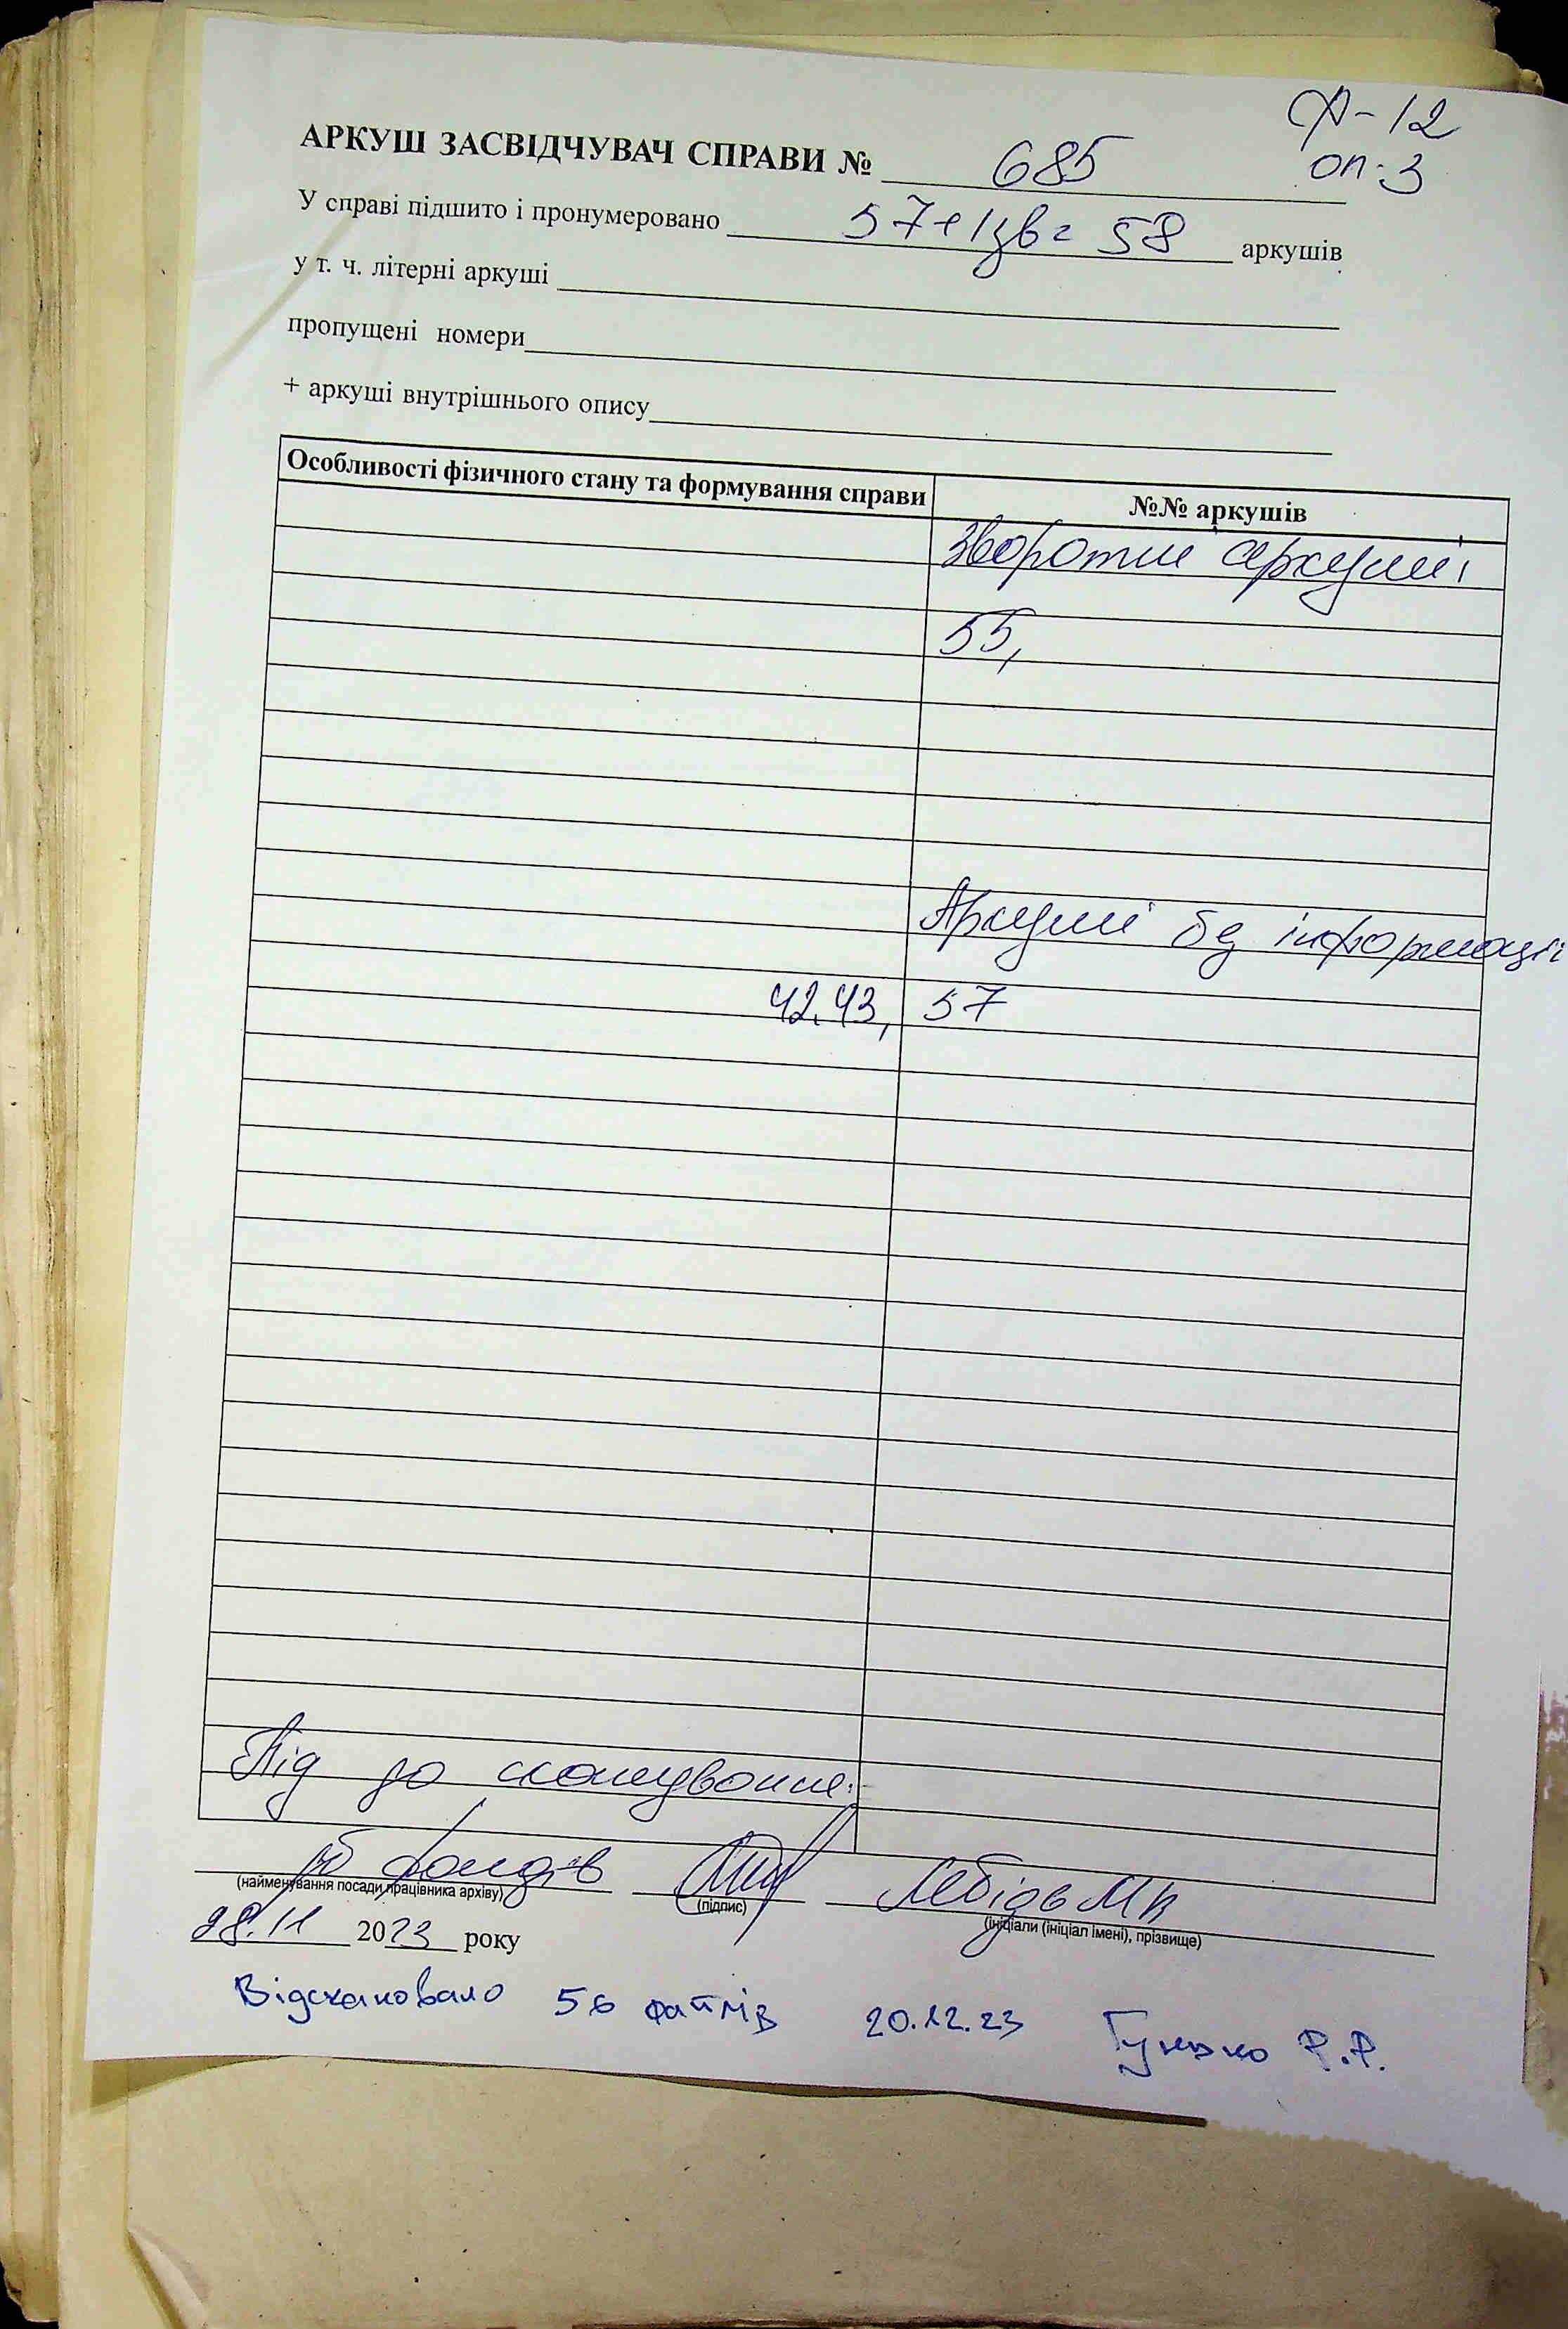 Ф-12
АРКУШ ЗАСВІДЧУВАЧ СПРАВИ № 685
оп-3
У справі підшито і пронумеровано 57+1зв= 58 аркушів
у т. ч. літерні аркуші
пропущені номери
+ аркуші внутрішнього опису
Особливості фізичного стану та формування справи
№№ аркушів
Зворотні аркуші
55,
Аркуші без інформації
42,43, 57
Під до сканування:
фондів Лебідь М
(найменування посади працівника архіву)
(підпис)
(ініціали (ініціал імені), прізвище)
28.11 2023 року
Відскановано 56 файлів 20.12.23 Гунько Р.Р.